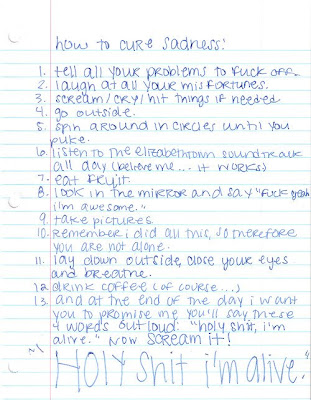 how to cure sadness:
1. tell all your problems to fuck off.
2. laugh at all your misfortunes.
3. scream/cry/hit things if needed
4. go outside.
5. spin around in circles until you
puke.
6. listen to the elizabethtown soundtrack
all day (believe me... it works)
7. eat fruit.
8. look in the mirror and say "fuck yeah
i'm awesome."
9. take pictures.
10. remember i did all this, so therefore
you are not alone.
11. lay down outside, close your eyes
and breathe.
12. drink coffee (of course...)
13. and at the end of the day i want
you to promise me you'll say these
4 words out loud: "holy shit, i'm
alive." now scream it!
"HOLY shit i'm alive."